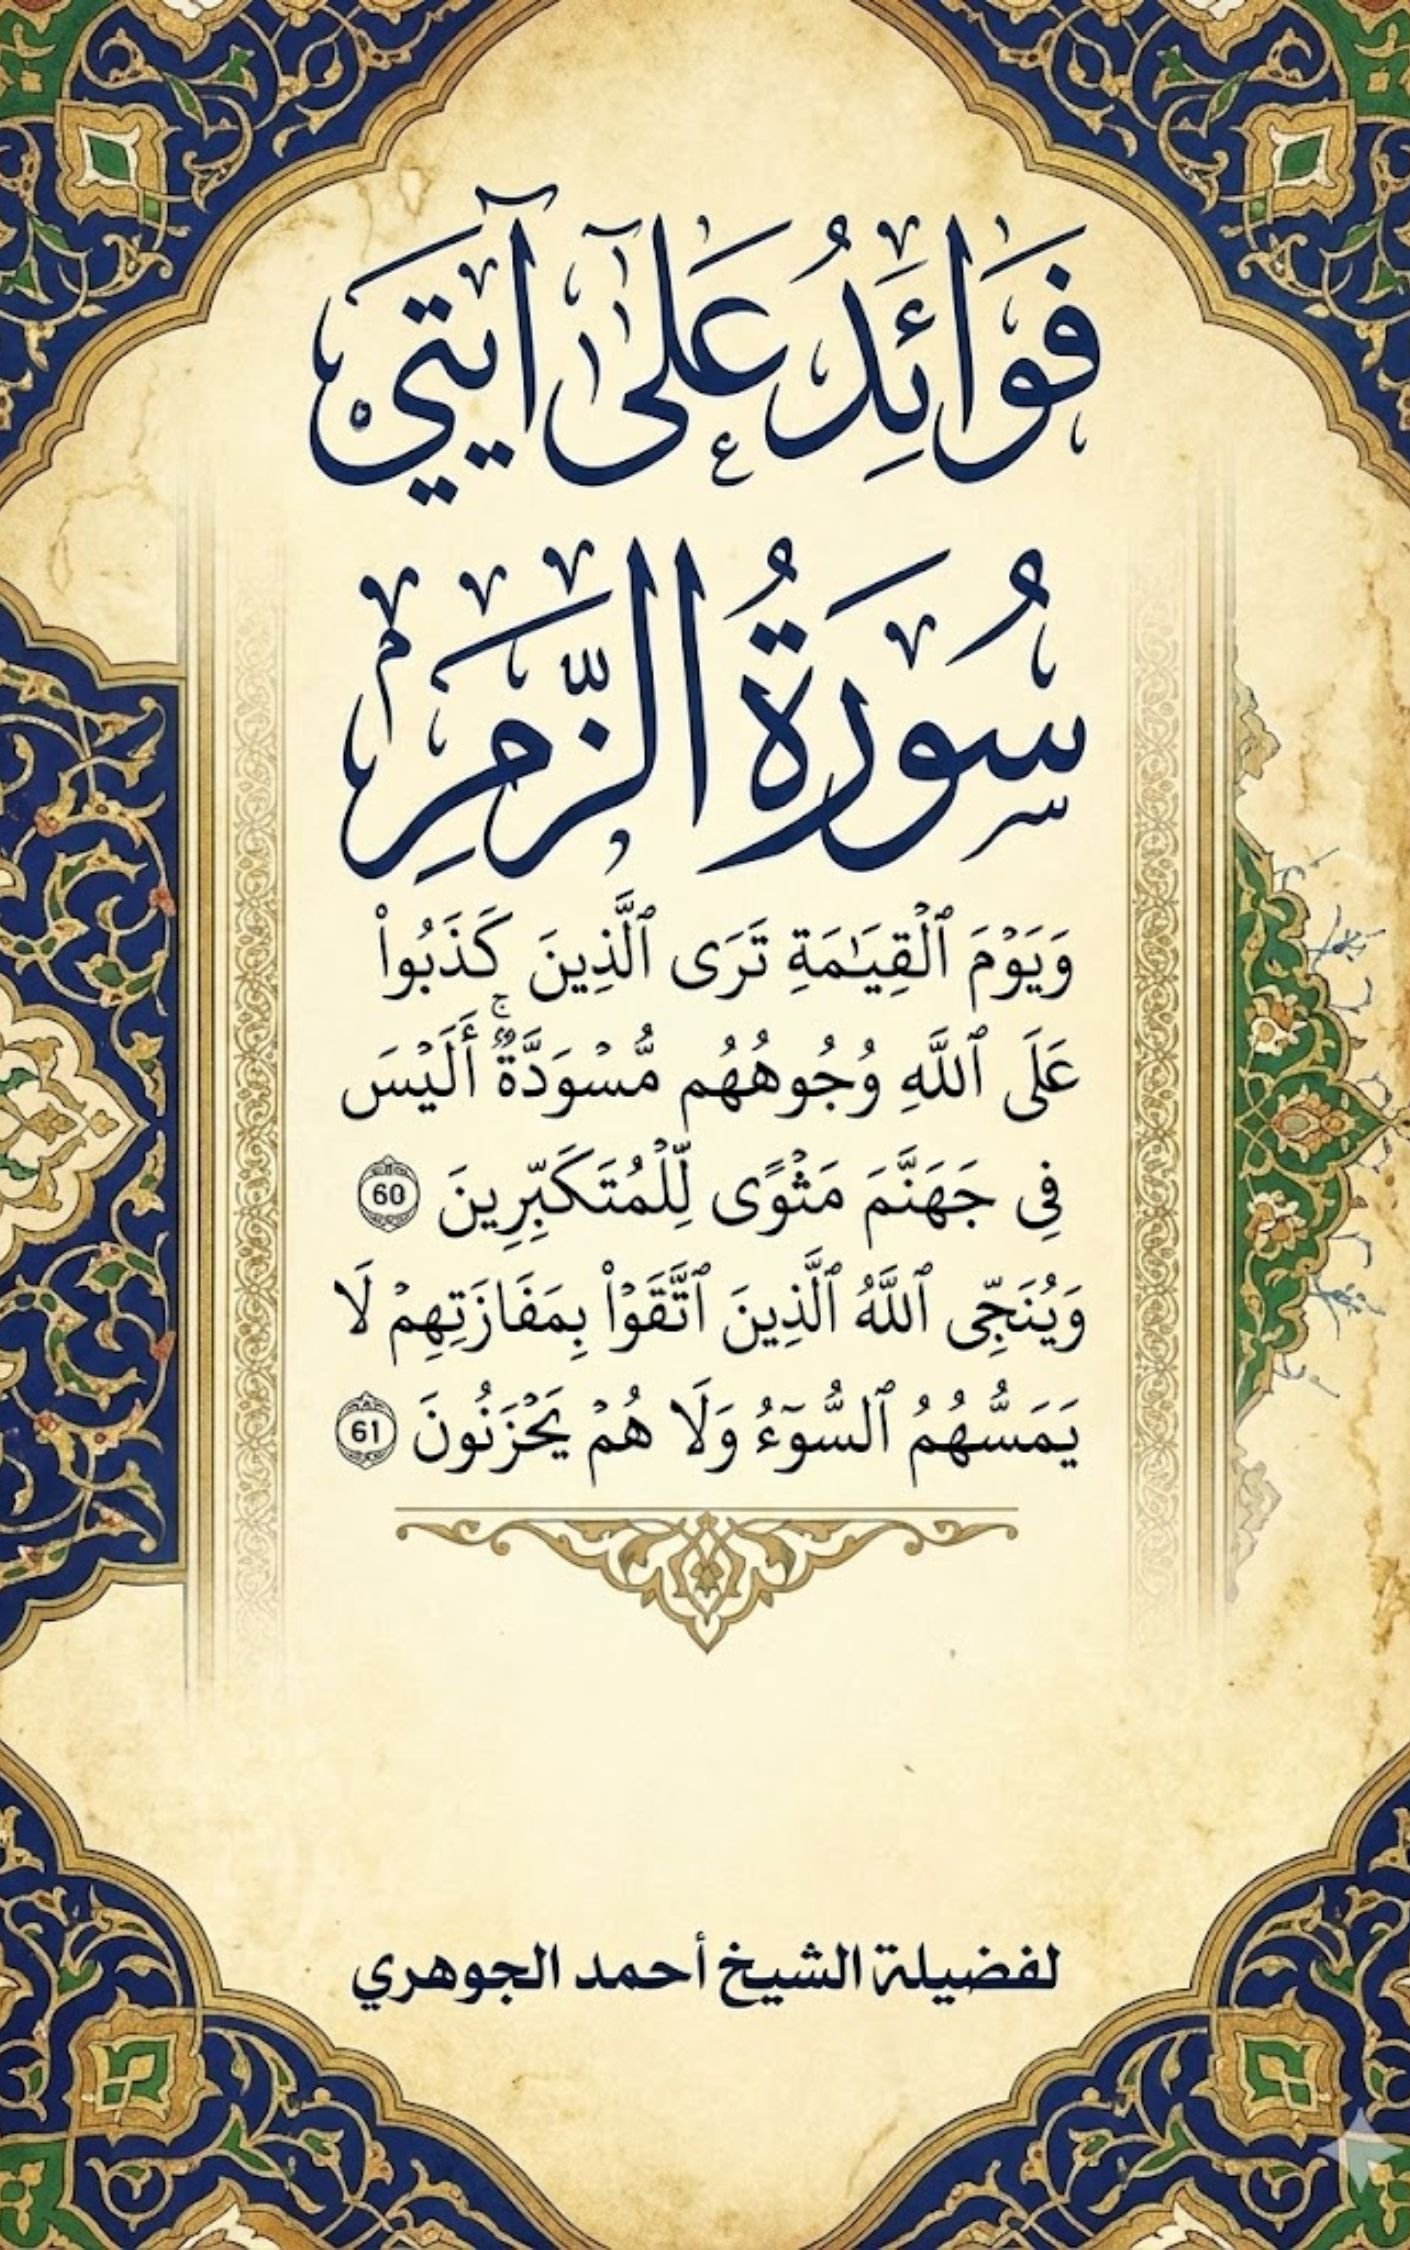 فَوَائِدُ عَلَى آيَتَي
سُورَةُ الزُّمَرِ
وَيَوْمَ ٱلْقِيَـٰمَةِ تَرَى ٱلَّذِينَ كَذَبُوا۟
عَلَى ٱللَّهِ وُجُوهُهُم مُّسْوَدَّةٌ ۚ أَلَيْسَ
فِى جَهَنَّمَ مَثْوًى لِّلْمُتَكَبِّرِينَ 60
وَيُنَجِّى ٱللَّهُ ٱلَّذِينَ ٱتَّقَوْا۟ بِمَفَازَتِهِمْ لَا
يَمَسُّهُمُ ٱلسُّوٓءُ وَلَا هُمْ يَحْزَنُونَ 61
لفضيلة الشيخ أحمد الجوهري